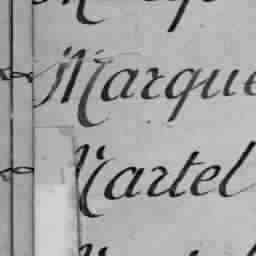 Marque
Martel